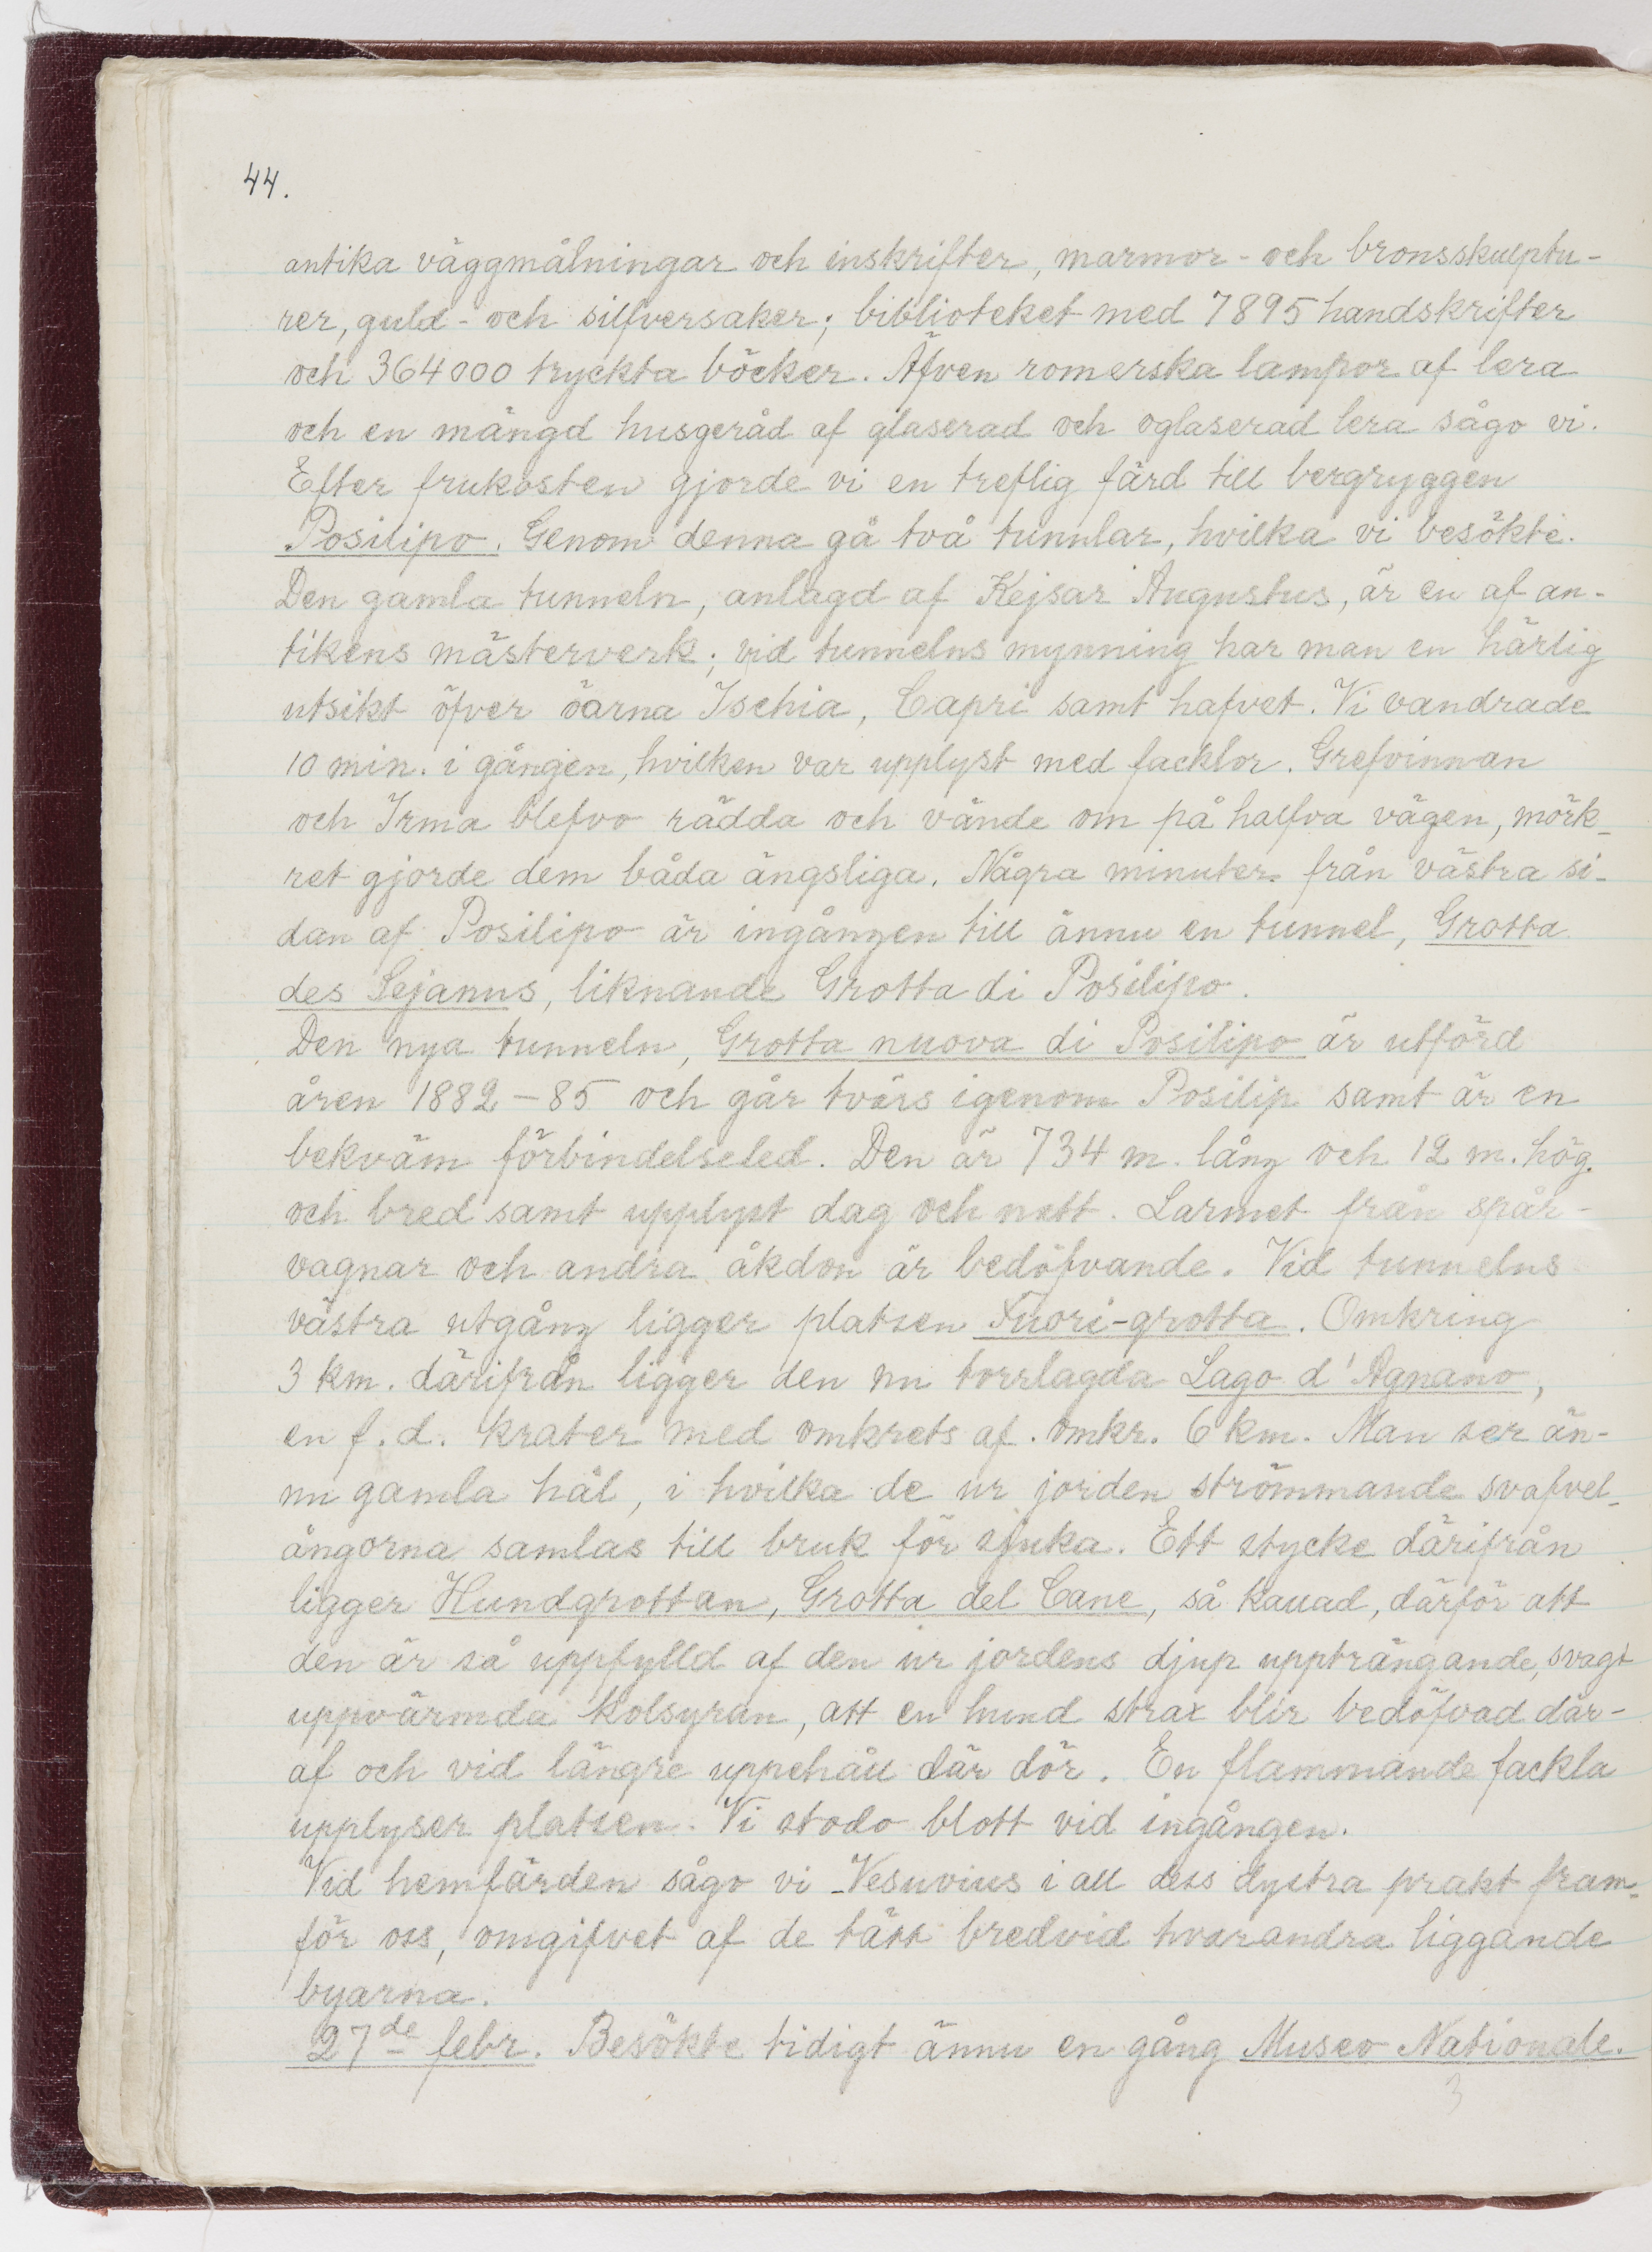 44.
antika väggmålningar och inskrifter, marmor- och bronsskulptu-
rer, guld- och silfversaker; biblioteket med 7895 handskrifter
och 364000 tryckta böcker. Äfven romerska lampor af lera
och en mängd husgeråd af glaserad och oglaserad lera sågo vi.
Efter frukosten gjorde vi en treflig färd till bergryggen
Posilipo. Genom denna gå två tunnlar, hvilka vi besökte.
Den gamla tunneln, anlagd af Kejsar Augustus, är en af an-
tikens mästerverk; vid tunnelns mynning har man en härlig
utsikt öfver öarna Ischia, Capri samt hafvet. Vi vandrade
10 min. i gången, hvilken var upplyst med facklor. Grefvinnan
och Irma blefvo rädda och vände om på halfva vägen, mörk-
ret gjorde dem båda ängsliga. Några minuter från västra si-
dan af Posilipo är ingången till ännu en tunnel, Grotta
des Sejanus, liknande Grotta di Posilipo.
Den nya tunneln, Grotta nuova di Posilipo är utförd
åren 1882-85 och går tvärs igenom Posilip samt är en
bekväm förbindelseled. Den är 734 m. lång och 12 m. hög
och bred samt upplyst dag och natt. Larmet från spår-
vagnar och andra åkdon är bedöfvande. Vid tunnelns
västra utgång ligger platsen Fuori-grotta. Omkring
3 km. därifrån ligger den nu torrlagda Lago d'Agnano,
en f. d. krater med omkrets af omkr. 6 km. Man ser än-
nu gamla hål, i hvilka de ur jorden strömmande svafvel-
ångorna samlas till bruk för sjuka. Ett stycke därifrån
ligger Hundgrottan, Grotta del Cane, så kallad, därför att
den är så uppfylld af den ur jordens djup uppträngande, svagt
uppvärmda kolsyran, att en hund strax blir bedöfvad där-
af och vid längre uppehåll där dör. En flammande fackla
upplyser platsen. Vi stodo blott vid ingången.
Vid hemfärden sågo vi Vesuvius i all dess dystra prakt fram-
för oss, omgifvet af de tätt bredvid hvarandra liggande
byarna.
27de febr. Besökte tidigt ännu en gång Museo Nationale.
3